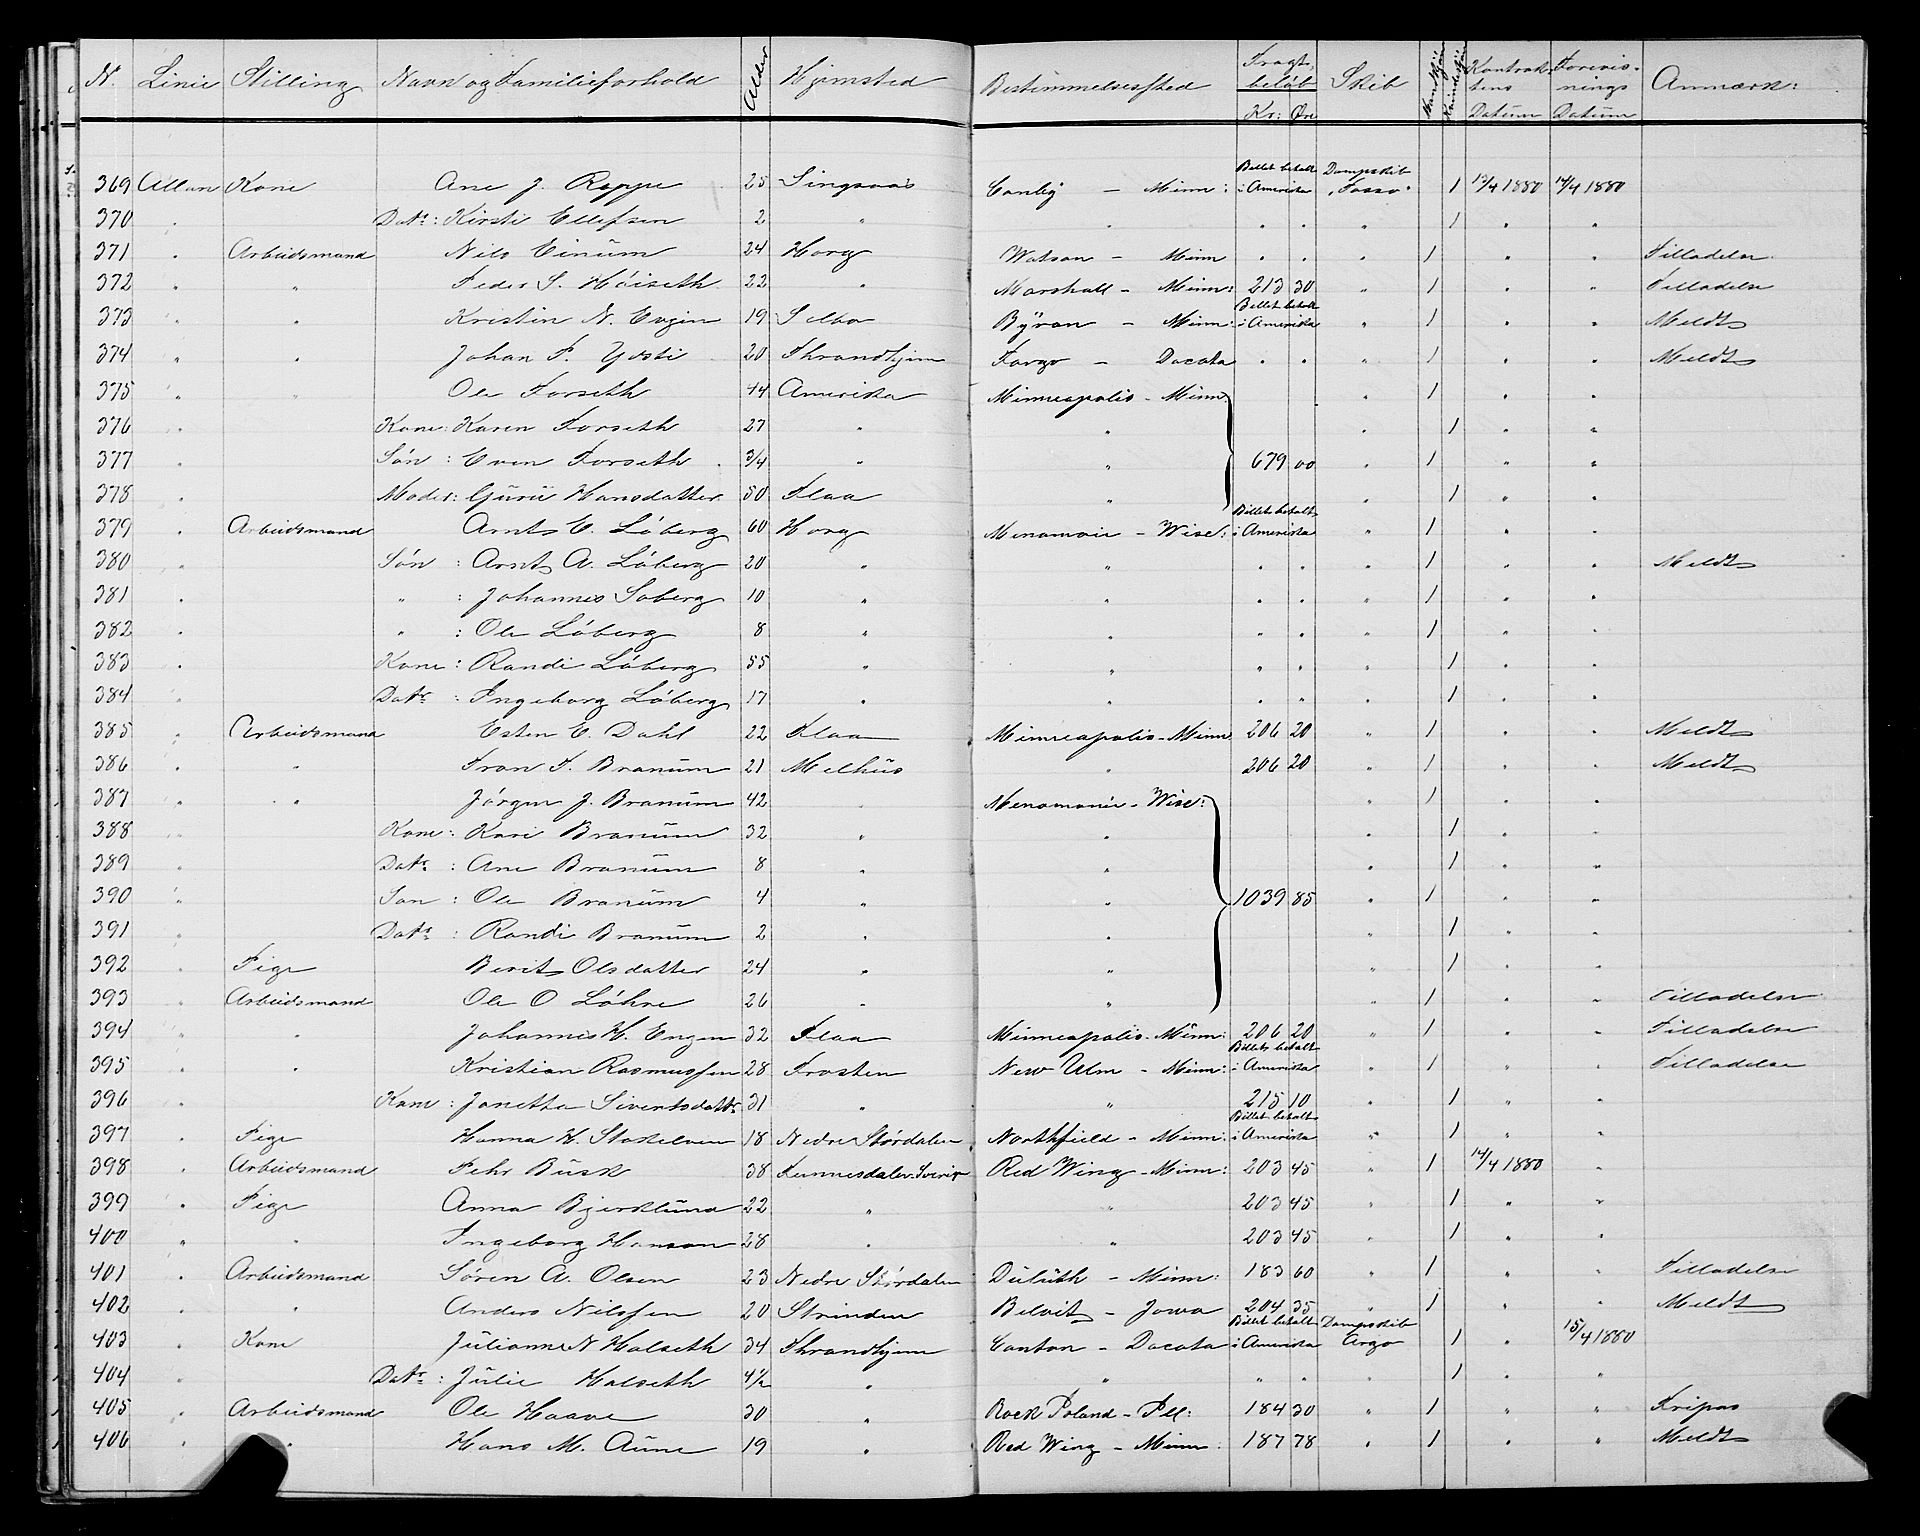 N. Linie Stilling Navn og Familieforhold Alder Hjemsted Bestemmelsessted Fragtbeløb Kr: Øre Skib Mandkjøn Kvindekjøn Kontraktens Datum Forevisnings Datum Anmærk:
369 Allan Kone Ane J. Roppe 25 Singsaas Canby - Minn: Billet betalt i Amerika Dampskib "Tasso" 1 13/4 1880 14/4 1880
370 " Datr: Kirsti Ellefsen 2 " " " " " 1 " "
371 " Arbeidsmand Nils Einum 24 Horg Watson - Minn " " " 1 " " Tilladelse
372 " " Peder S. Høiseth 22 " Marshall - Minn: 213 30 " 1 " " Tilladelse
373 " " Kristen N. Evgin 19 Selbo Byron - Minn: Billet betalt i Amerika " 1 " " Meldt
374 " " Johan P. Ydsti 20 Throndhjem Fargo - Dacota " " " 1 " " Meldt
375 " " Ole Forseth 44 Amerika Minneapolis - Minn: " 1 " "
376 " Kone: Karen Forseth 27 " " " 1 " "
377 " Søn: Even Forseth 3/4 " " 679 00 " 1 " "
378 " Moder: Guru Hansdatter 50 Flaa " " 1 " "
379 " Arbeidsmand Arnt E. Løberg 60 Horg Menomoie - Wisc: Billet betalt i Amerika " 1 " "
380 " Søn: Arnt A. Løberg 20 " " " " " 1 " " Meldt
381 " " : Johannes Soberg 10 " " " " " 1 " "
382 " " : Ole Løberg 8 " " " " " 1 " "
383 " Kone: Randi Løberg 55 " " " " " 1 " "
384 " Datr: Ingeborg Løberg 17 " " " " " 1 " "
385 " Arbeidsmand Esten E. Dahl 22 Flaa Minneapolis - Minn 206 20 " 1 " " Meldt
386 " " Tron T. Branum 21 Melhus " 206 20 " 1 " " Meldt
387 " " Jørgen J. Branum 42 " Menomonie - Wisc: " 1 " "
388 " Kone: Kari Branum 32 " " " 1 " "
389 " Datr: Ane Branum 8 " " " 1 " "
390 " Søn: Ole Branum 4 " " 1039 85 " 1 " "
391 " Datr: Randi Branum 2 " " " 1 " "
392 " Pige Berit Olsdatter 24 " " " 1 " "
393 " Arbeidsmand Ole O Løhre 26 " " " 1 " " Tilladelse
394 " " Johannes H. Engen 32 Flaa Minneapolis - Minn: 206 20 " 1 " " Tilladelse
395 " " Kristian Rasmussen 28 Frosten New Ulm - Minn: Billet betalt i Amerika " 1 " " Tilladelse
396 " Kone: Janetta Sivertsdattr 31 " " 215 10 " 1 " "
397 " Pige Hanna H. Stokelven 18 Nedre Størdalen Northfield - Minn: Billet betalt i Amerika " 1 " "
398 " Arbeidsmand Pehr Busk 38 Sverige Red Wing - Minn: 203 45 " 1 14/4 1880 "
399 " Pige Anna Bjerklund 22 " " 203 45 " 1 " "
400 " " Ingeborg Hanson 28 " " 203 45 " 1 " "
401 " Arbeidsmand Søren A. Olsen 23 Nedre Størdalen Duluth - Minn: 183 60 " 1 " " Tilladelse
402 " " Anders Nilssen 20 Strinden Beloit - Jowa 204 35 " 1 " " Meldt
403 " Kone Julianne N Halseth 34 Throndhjem Canton - Dacota Billet betalt i Amerika Dampskib Argo 1 " 15/4 1880
404 " Datr: Julie Halseth 4½ " " " " " 1 " "
405 " Arbeidsmand Ole Haave 30 " Rock Island - Ill: 184 30 " 1 " " Fripas
406 " " Hans M. Aune 19 " Red Wing - Minn: 187 78 " 1 " " Meldt